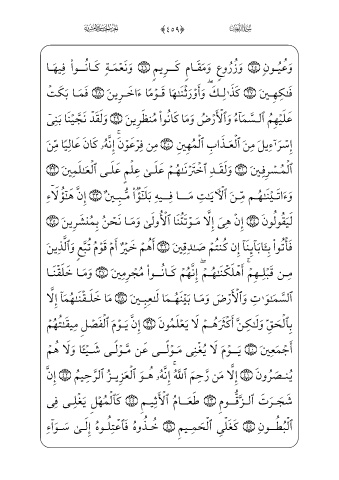 ﴿٤٥٩﴾
وَعُيُونٍ ۝٢٥ وَزُرُوعٍ وَمَقَامٍ كَرِيمٍ ۝٢٦ وَنَعْمَةٍ كَانُوا۟ فِيهَا
فَٰكِهِينَ ۝٢٧ كَذَٰلِكَ ۖ وَأَوْرَثْنَٰهَا قَوْمًا ءَاخَرِينَ ۝٢٨ فَمَا بَكَتْ
عَلَيْهِمُ ٱلسَّمَآءُ وَٱلْأَرْضُ وَمَا كَانُوا۟ مُنظَرِينَ ۝٢٩ وَلَقَدْ نَجَّيْنَا بَنِىٓ
إِسْرَٰٓءِيلَ مِنَ ٱلْعَذَابِ ٱلْمُهِينِ ۝٣٠ مِن فِرْعَوْنَ ۚ إِنَّهُۥ كَانَ عَالِيًا مِّنَ
ٱلْمُسْرِفِينَ ۝٣١ وَلَقَدِ ٱخْتَرْنَٰهُمْ عَلَىٰ عِلْمٍ عَلَى ٱلْعَٰلَمِينَ ۝٣٢
وَءَاتَيْنَٰهُم مِّنَ ٱلْءَايَٰتِ مَا فِيهِ بَلَٰٓؤٌا۟ مُّبِينٌ ۝٣٣ إِنَّ هَٰٓؤُلَآءِ
لَيَقُولُونَ ۝٣٤ إِنْ هِىَ إِلَّا مَوْتَتُنَا ٱلْأُولَىٰ وَمَا نَحْنُ بِمُنشَرِينَ ۝٣٥
فَأْتُوا۟ بِـَٔابَآئِنَآ إِن كُنتُمْ صَٰدِقِينَ ۝٣٦ أَهُمْ خَيْرٌ أَمْ قَوْمُ تُبَّعٍ وَٱلَّذِينَ
مِن قَبْلِهِمْ ۚ أَهْلَكْنَٰهُمْ ۖ إِنَّهُمْ كَانُوا۟ مُجْرِمِينَ ۝٣٧ وَمَا خَلَقْنَا
ٱلسَّمَٰوَٰتِ وَٱلْأَرْضَ وَمَا بَيْنَهُمَا لَٰعِبِينَ ۝٣٨ مَا خَلَقْنَٰهُمَآ إِلَّا
بِٱلْحَقِّ وَلَٰكِنَّ أَكْثَرَهُمْ لَا يَعْلَمُونَ ۝٣٩ إِنَّ يَوْمَ ٱلْفَصْلِ مِيقَٰتُهُمْ
أَجْمَعِينَ ۝٤٠ يَوْمَ لَا يُغْنِى مَوْلًى عَن مَّوْلًى شَيْـًٔا وَلَا هُمْ
يُنصَرُونَ ۝٤١ إِلَّا مَن رَّحِمَ ٱللَّهُ ۚ إِنَّهُۥ هُوَ ٱلْعَزِيزُ ٱلرَّحِيمُ ۝٤٢ إِنَّ
شَجَرَتَ ٱلزَّقُّومِ ۝٤٣ طَعَامُ ٱلْأَثِيمِ ۝٤٤ كَٱلْمُهْلِ يَغْلِى فِى
ٱلْبُطُونِ ۝٤٥ كَغَلْىِ ٱلْحَمِيمِ ۝٤٦ خُذُوهُ فَٱعْتِلُوهُ إِلَىٰ سَوَآءِ